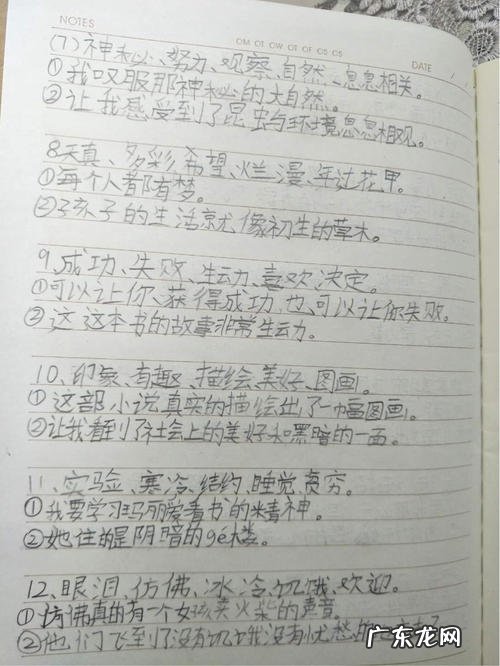 NOTES
OM OT OW OT OF OS OS
DATE / /
(7)神秘、努力、观察、自然、息息相关。
①我叹服那神秘的大自然。
②让我感受到了昆虫与环境息息相观。
8天真、多彩、希望、烂漫、年过花甲。
①每个人都有梦。
②孩子的生活就像初生的草木。
9、成功、失败、生动、喜欢、决定。
①可以让你、获得成功,也、可以让你失败。
②这这本书的故事非常生动。
10、印象、有趣、描绘、美好、图画。
①这部小说真实的描绘出了一幅图画。
②让我看到了社会上的美好和黑暗的一面。
11、实验、寒冷、结约、睡觉、贫穷。
①我要学习玛丽爱看书的精神。
②她住的是阴暗的gé楼。
12、眼泪、仿佛、冰冷、饥饿、欢迎。
①仿佛真的有一个女孩卖火柴的声音。
②他们飞到了没有饥饿没有忧愁的
广东龙网